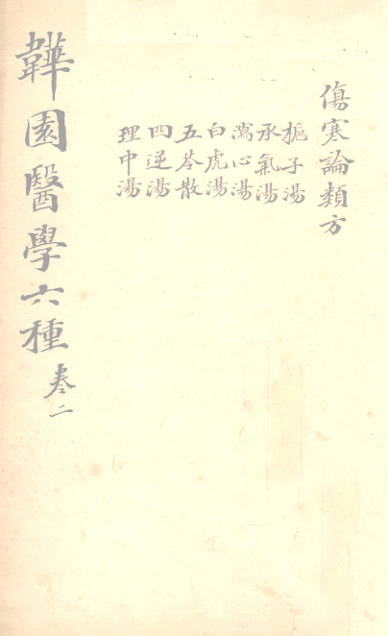 傷寒論類方
梔子湯
承氣湯
瀉心湯
白虎湯
五苓散
四逆湯
理中湯
韡園醫學六種 卷二